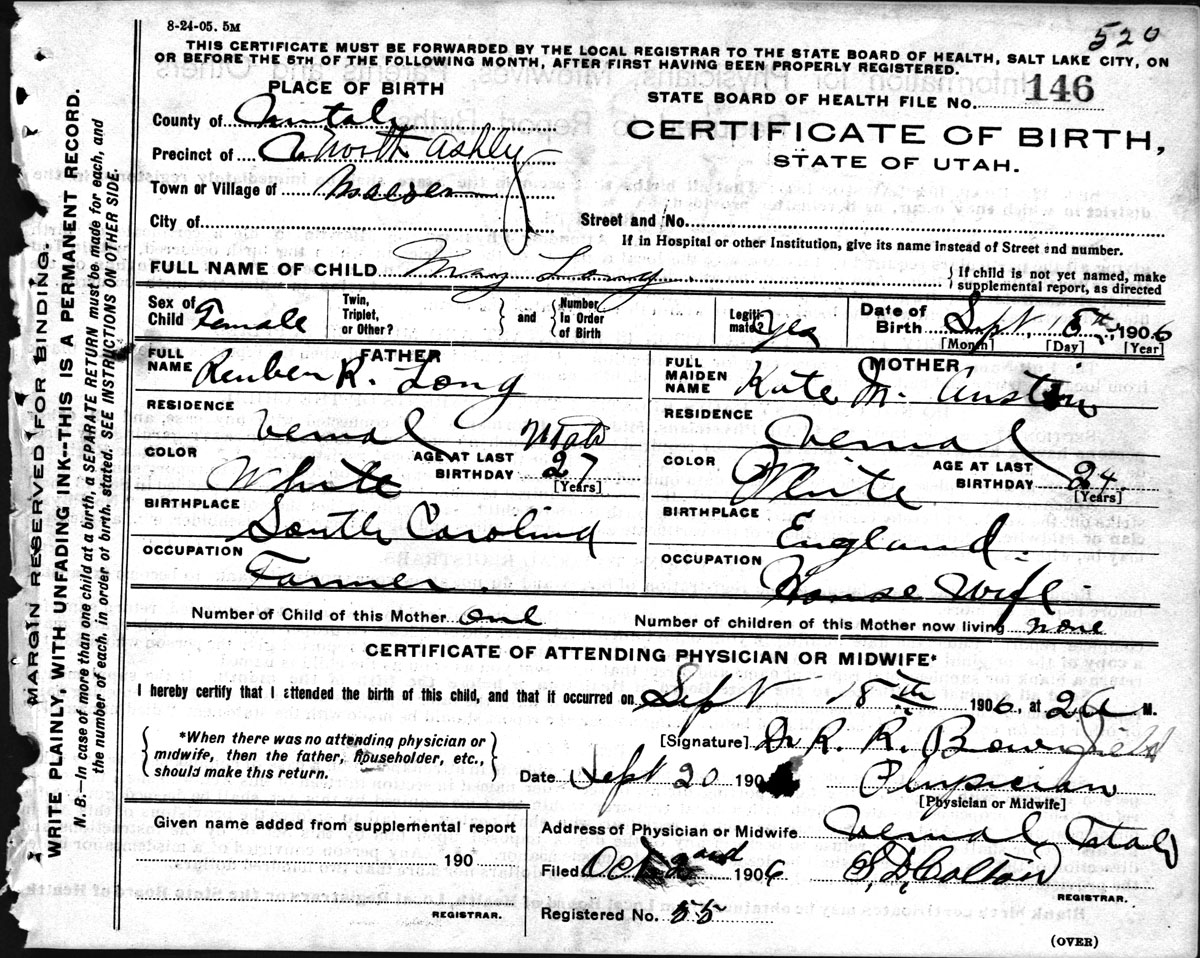 8-24-05. 5M
520
THIS CERTIFICATE MUST BE FORWARDED BY THE LOCAL REGISTRAR TO THE STATE BOARD OF HEALTH, SALT LAKE CITY, ON
OR BEFORE THE 5TH OF THE FOLLOWING MONTH, AFTER FIRST HAVING BEEN PROPERLY REGISTERED.
PLACE OF BIRTH
STATE BOARD OF HEALTH FILE No. 146
County of
CERTIFICATE OF BIRTH,
STATE OF UTAH.
Precinct of North Ashly
Town or Village of
City of
Street and No.
If in Hospital or other Institution, give its name instead of Street and number.
FULL NAME OF CHILD Long
If child is not yet named, make
supplemental report, as directed
Sex of Child Female
Twin, Triplet, or Other?
and
Number in Order of Birth
Legitimate? Yes
Date of Birth Sept. 1906
[Month] [Day] [Year]
FATHER
FULL NAME Reuben R. Long
RESIDENCE
Vernal Utah
COLOR White
AGE AT LAST BIRTHDAY 27
[Years]
BIRTHPLACE
South Carolina
OCCUPATION
Farmer.
MOTHER
FULL MAIDEN NAME Kate M. Austin
RESIDENCE
Vernal
COLOR White
AGE AT LAST BIRTHDAY 24.
[Years]
BIRTHPLACE
England.
OCCUPATION
House Wife
Number of Child of this Mother one
Number of children of this Mother now living none
CERTIFICATE OF ATTENDING PHYSICIAN OR MIDWIFE*
I hereby certify that I attended the birth of this child, and that it occurred on Sept 18th 1906, at 2 a M.
*When there was no attending physician or
midwife, then the father, householder, etc.,
should make this return.
[Signature] Dr R. R.
Date Sept 20 190
Physician
[Physician or Midwife]
Given name added from supplemental report
190
REGISTRAR.
Address of Physician or Midwife Vernal Utah
Filed Oct 2nd 1906 Colton
REGISTRAR.
Registered No. 55
(OVER)
MARGIN RESERVED FOR BINDING.
WRITE PLAINLY, WITH UNFADING INK--THIS IS A PERMANENT RECORD.
N. B.—In case of more than one child at a birth, a SEPARATE RETURN must be made for each, and
the number of each, in order of birth, stated. SEE INSTRUCTIONS ON OTHER SIDE.